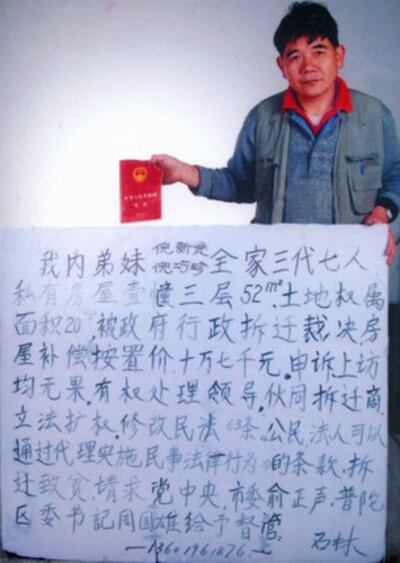 中华人民共和国
宪法
我内弟妹倪新觉
倪巧珍全家三代七人
私有房屋壹幢三层52m²土地权属
面积20m²被政府行政拆迁裁决.房
屋补偿按置价十万七千元.申诉上访
均无果.有权处理领导,伙同拆迁商
立法扩权.修改民法63条《公民法人可以
通过代理实施民事法律行为》的条款.拆
迁致贫.请求党中央.市委俞正声.普陀
区委书記周国雄给予督管:
—13601961876.— 石林